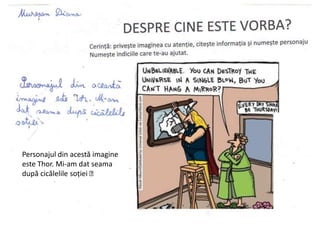 Mureșan Diana
DESPRE CINE ESTE VORBA?
Cerință: privește imaginea cu atenție, citește informația și numește personaju
Numește indiciile care te-au ajutat.
Personajul din această
imagine este Tor. M-am
dat seama după cicălelile
soției
UNBELIEVABLE. YOU CAN DESTROY THE
UNIVERSE IN A SINGLE BLOW, BUT YOU
CAN'T HANG A MIRROR?
EVERY DAY SHOULD
BE THURSDAY!
Personajul din acestă imagine
este Thor. Mi-am dat seama
după cicălelile soției